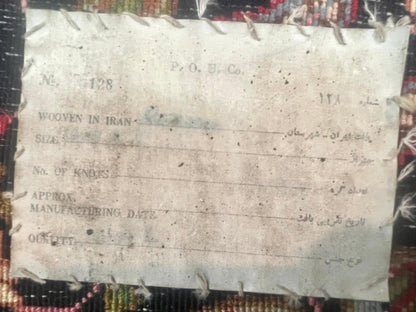 P. O. U. Co.
No. 128
شماره ۱۲۸
WOOVEN IN IRAN
بافت ایران - شهرستان
SIZE
No. OF KNOTS
تعداد گره
APPROX.
MANUFACTURING DATE
تاریخ تقریبی بافت
QUNTITY
نوع جنس